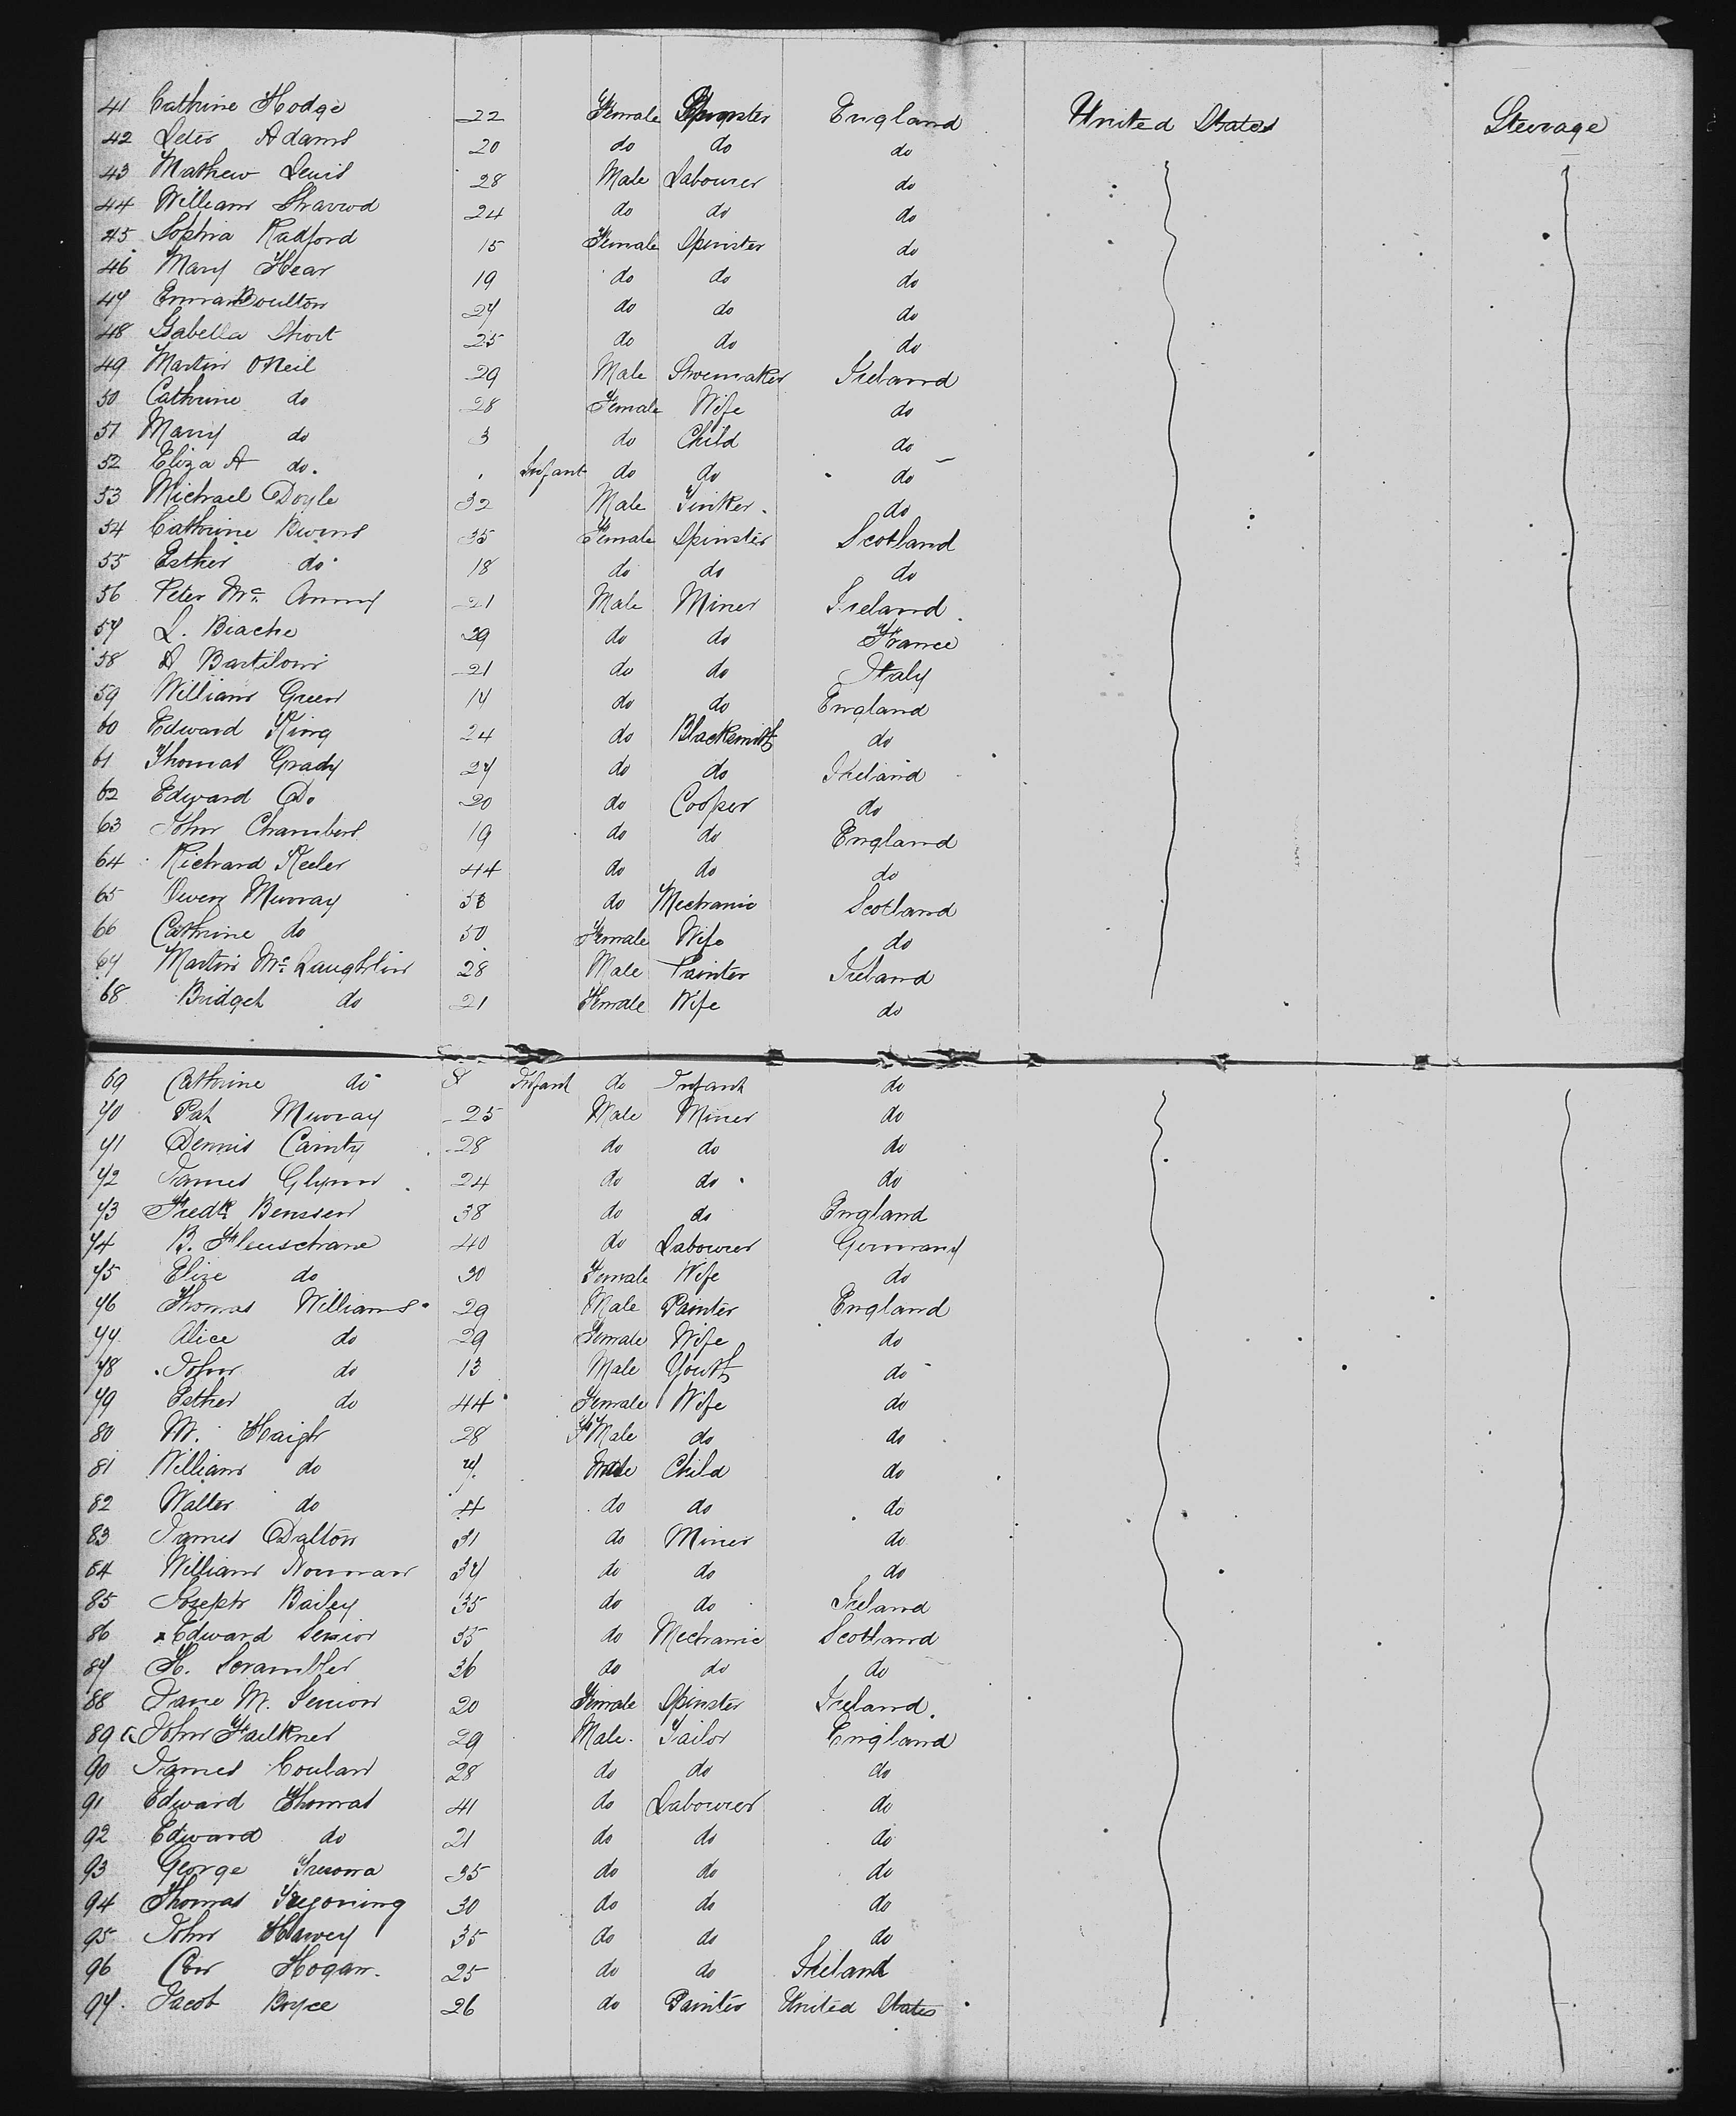 41 Cathrine Hodge 22 Female Spinster England United States Steerage
42 Peter Adams 20 do do do
43 Mathew Lewis 28 Male Labourer do
44 William 24 do do do
45 Sophia Radford 15 Female Spinster do
46 Mary Hear 19 do do do
47 Emma Boulton 27 do do do
48 Isabella Short 25 do do do
49 Martin ONeil 29 Male Shoemaker Ireland
50 Cathrine do 28 Female Wife do
51 Mary do 3 do Child do
52 Eliza A do. Infant do do do
53 Michael Doyle 32 Male Tinker. do
54 Cathrine Bivens 35 Female Spinster Scotland
55 Esther do 18 do do do
56 Peter Mc. 21 Male Miner Ireland
57 L. Biache 29 do do France
58 A Bartiloni 21 do do Italy
59 William Green 17 do do England
60 Edward King 24 do Blacksmith do
61 Thomas Grady 27 do do Ireland
62 Edward Do 20 do Cooper do
63 John Chambers 19 do do England
64 Richard Keeler 44 do do do
65 Owen Murray do Mechanic Scotland
66 Cathrine do 50 Female Wife do
67 Martin Mc. Laughlin 28 Male Painter Ireland
68 Bridget do 21 Female Wife do
69 Cathrine do Infant do Infant do
70 Pat Murray 25 Male Miner do
71 Dennis Cainty 28 do do do
72 James Glynn 24 do do do
73 Fredk. Benssen 38 do do England
74 B. Fleuschane 40 do Labourer Germany
75 Elize do 30 Female Wife do
76 Thomas Williams 29 Male Painter England
77 Alice do 29 Female Wife do
78 John do 13 Male Youth do
79 Esther do 44 Female Wife do
80 M. Haigh 28 F Male do do
81 William do 7 Male Child do
82 Walter do 4 do do do
83 James Dalton 31 do Miner do
84 William Norman 37 do do do
85 Joseph Bailey 35 do do Ireland
86 x Edward Senior 35 do Mechanic Scotland
87 H. Scrambler 36 do do do
88 Jane M. Senior 20 Female Spinster Ireland.
89 John Faulkner 29 Male. Tailor England
90 James Coulan 28 do do do
91 Edward Thomas 41 do Labourer do
92 Edward do 21 do do do
93 George Tresona 35 do do do
94 Thomas Tregoning 30 do do do
95 John Harvey 35 do do do
96 Con Hogan. 25 do do Ireland
97. Jacob Boyce 26 do Painter United States